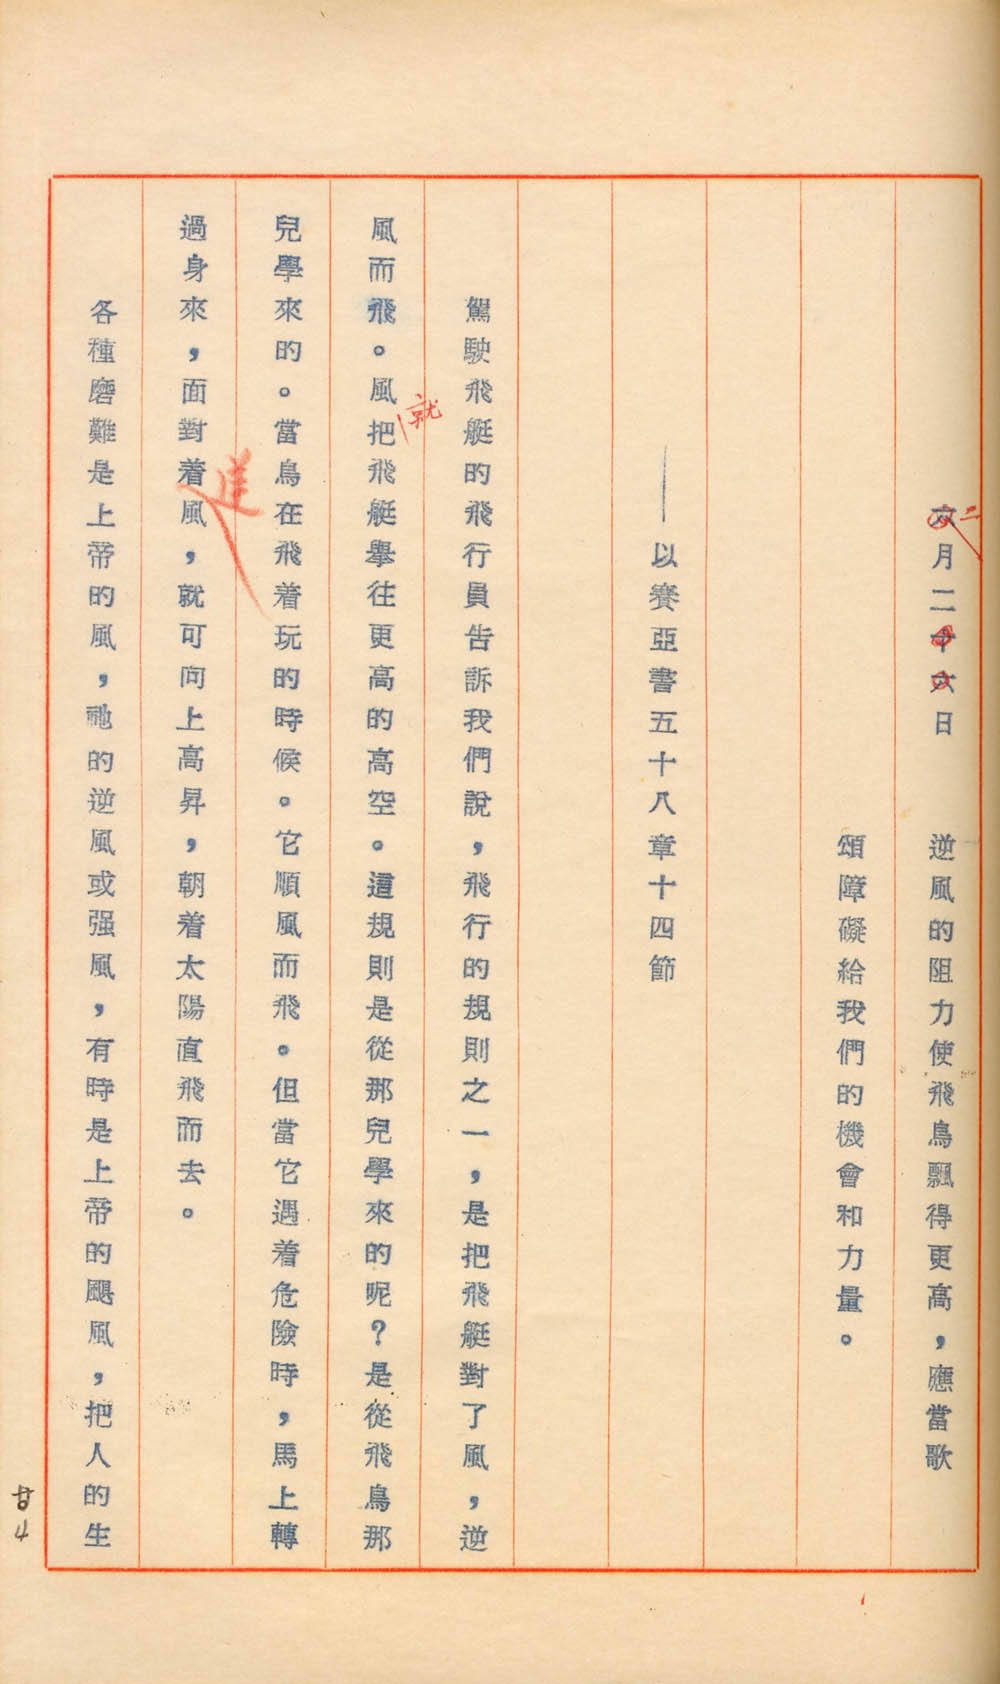 六月二十六日　　逆風的阻力使飛鳥飄得更高，應當歌
二
頌障礙給我們的機會和力量。
——以賽亞書五十八章十四節
駕駛飛艇的飛行員告訴我們說，飛行的規則之一，是把飛艇對了風，逆
就
風而飛。風把飛艇舉往更高的高空。這規則是從那兒學來的呢？是從飛鳥那
兒學來的。當鳥在飛着玩的時候。它順風而飛。但當它遇着危險時，馬上轉
過身來，面對着風，就可向上高昇，朝着太陽直飛而去。
各種磨難是上帝的風，祂的逆風或强風，有時是上帝的颶風，把人的生
廿4